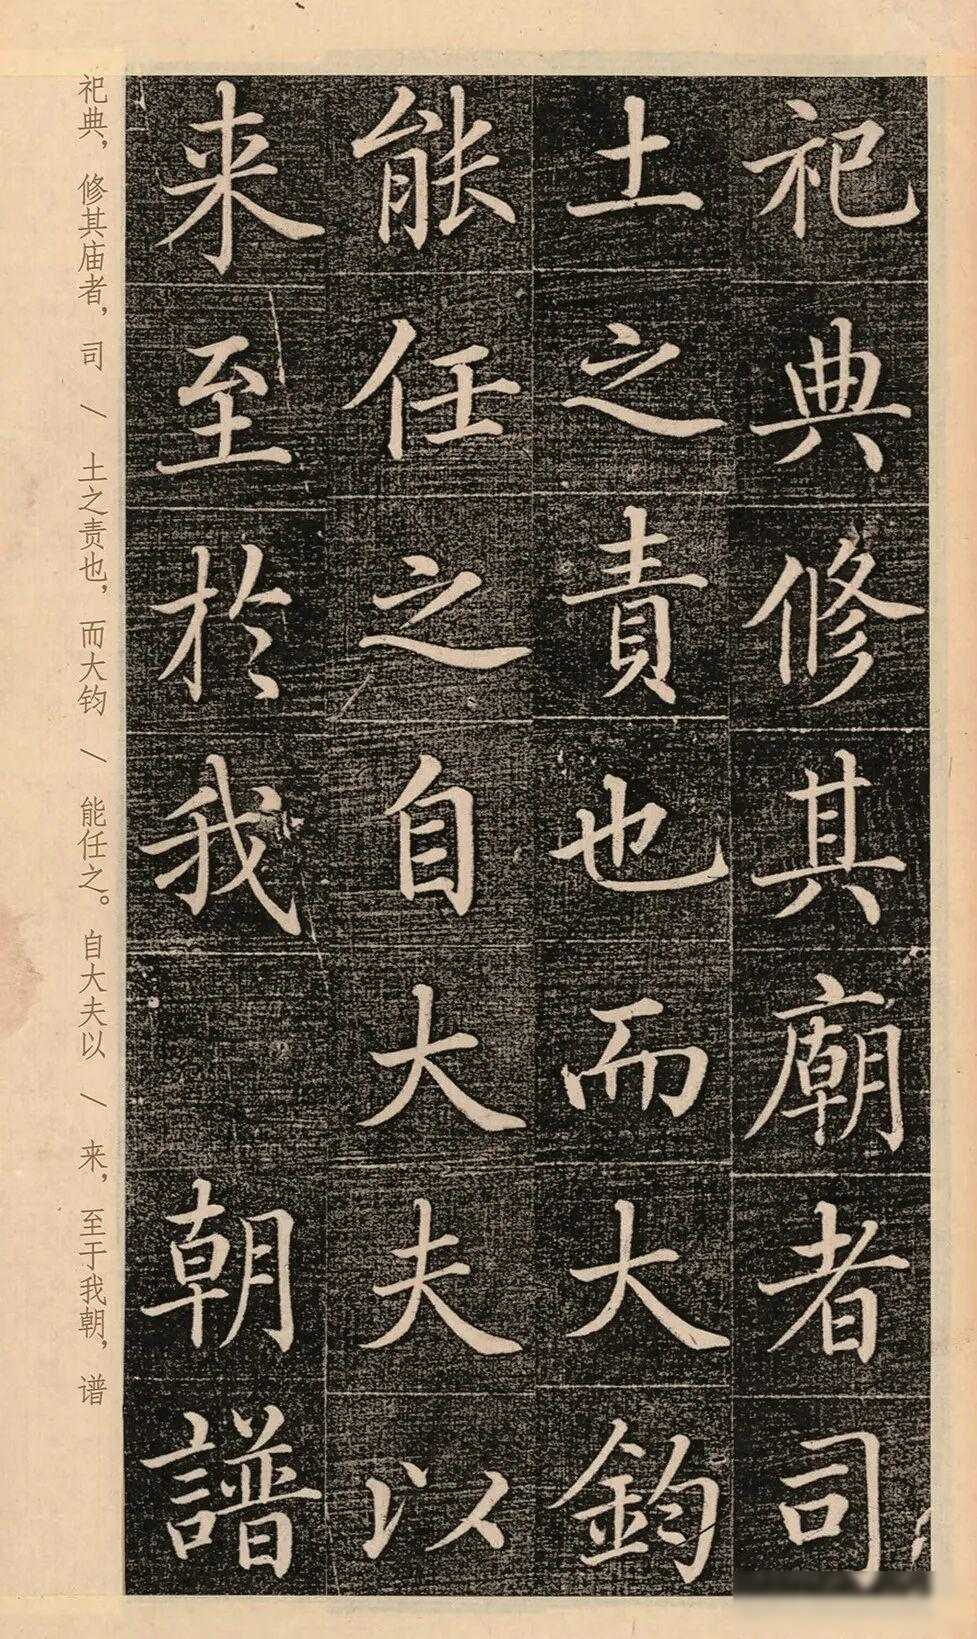 祀典修其廟者司
土之責也而大鈞
能任之自大夫以
来至於我朝譜
祀典，修其庙者，司 / 土之责也，而大钧 / 能任之。自大夫以 / 来，至于我朝，谱